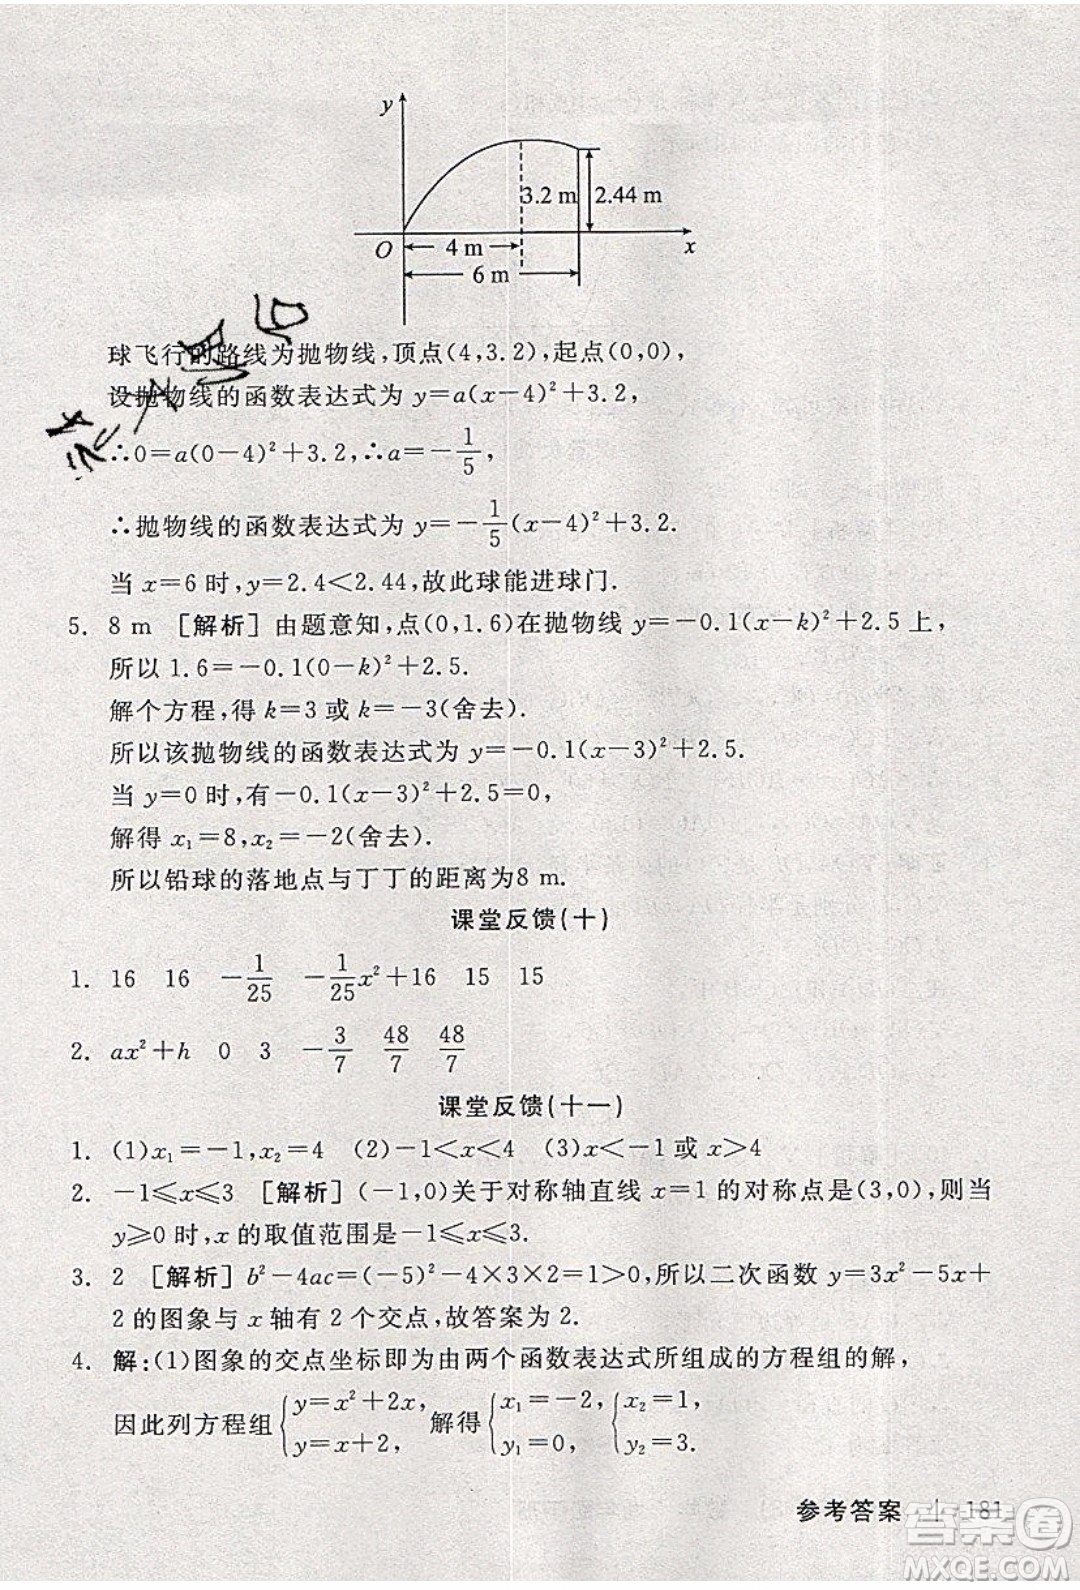 y
3.2 m
2.44 m
O
4 m
x
6 m
球飞行的路线为抛物线,顶点(4,3.2),起点(0,0),
设抛物线的函数表达式为 y=a(x-4)²+3.2,
∴0=a(0-4)²+3.2,∴a=-1/5,
∴抛物线的函数表达式为 y=-1/5(x-4)²+3.2.
当 x=6 时,y=2.4<2.44,故此球能进球门.
5. 8 m [解析]由题意知,点(0,1.6)在抛物线 y=-0.1(x-k)²+2.5 上,
所以 1.6=-0.1(0-k)²+2.5.
解个方程,得 k=3 或 k=-3(舍去).
所以该抛物线的函数表达式为 y=-0.1(x-3)²+2.5.
当 y=0 时,有-0.1(x-3)²+2.5=0,
解得 x₁=8,x₂=-2(舍去).
所以铅球的落地点与丁丁的距离为8 m.
课堂反馈(十)
1. 16 16 -1/25 -1/25x²+16 15 15
2. ax²+h 0 3 -3/7 48/7 48/7
课堂反馈(十一)
1. (1)x₁=-1,x₂=4 (2)-1<x<4 (3)x<-1 或 x>4
2. -1≤x≤3 [解析](-1,0)关于对称轴直线 x=1 的对称点是(3,0),则当
y≥0 时,x 的取值范围是-1≤x≤3.
3. 2 [解析]b²-4ac=(-5)²-4×3×2=1>0,所以二次函数 y=3x²-5x+
2 的图象与 x 轴有 2 个交点,故答案为 2.
4. 解:(1)图象的交点坐标即为由两个函数表达式所组成的方程组的解,
因此列方程组{y=x²+2x, y=x+2, 解得{x₁=-2, y₁=0, {x₂=1, y₂=3.
参考答案 | 181
答案圈
MXQE.COM